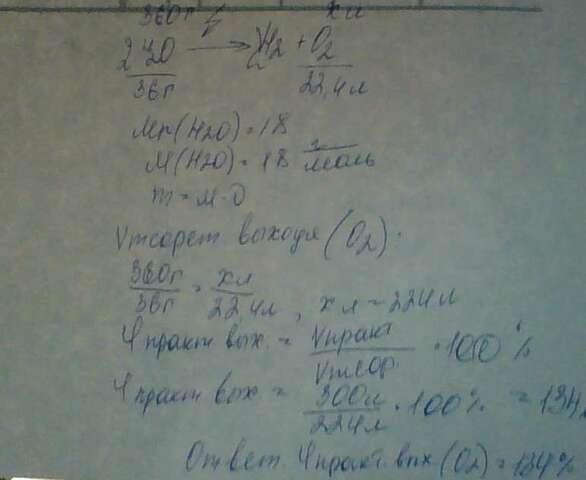 360г хл
2H2O → 2H2 + O2
36г 22,4л
Mr(H2O) = 18
M(H2O) = 18 г/моль
m = M·υ
Vтеорет выхода (O2):
360г/36г = хл/22,4л, хл = 224л
Ч практ вых. = Vпракт/Vтеор. · 100%
Ч практ вых = 300л/224л · 100% = 134
Ответ. Ч практ. вых (O2) = 134%